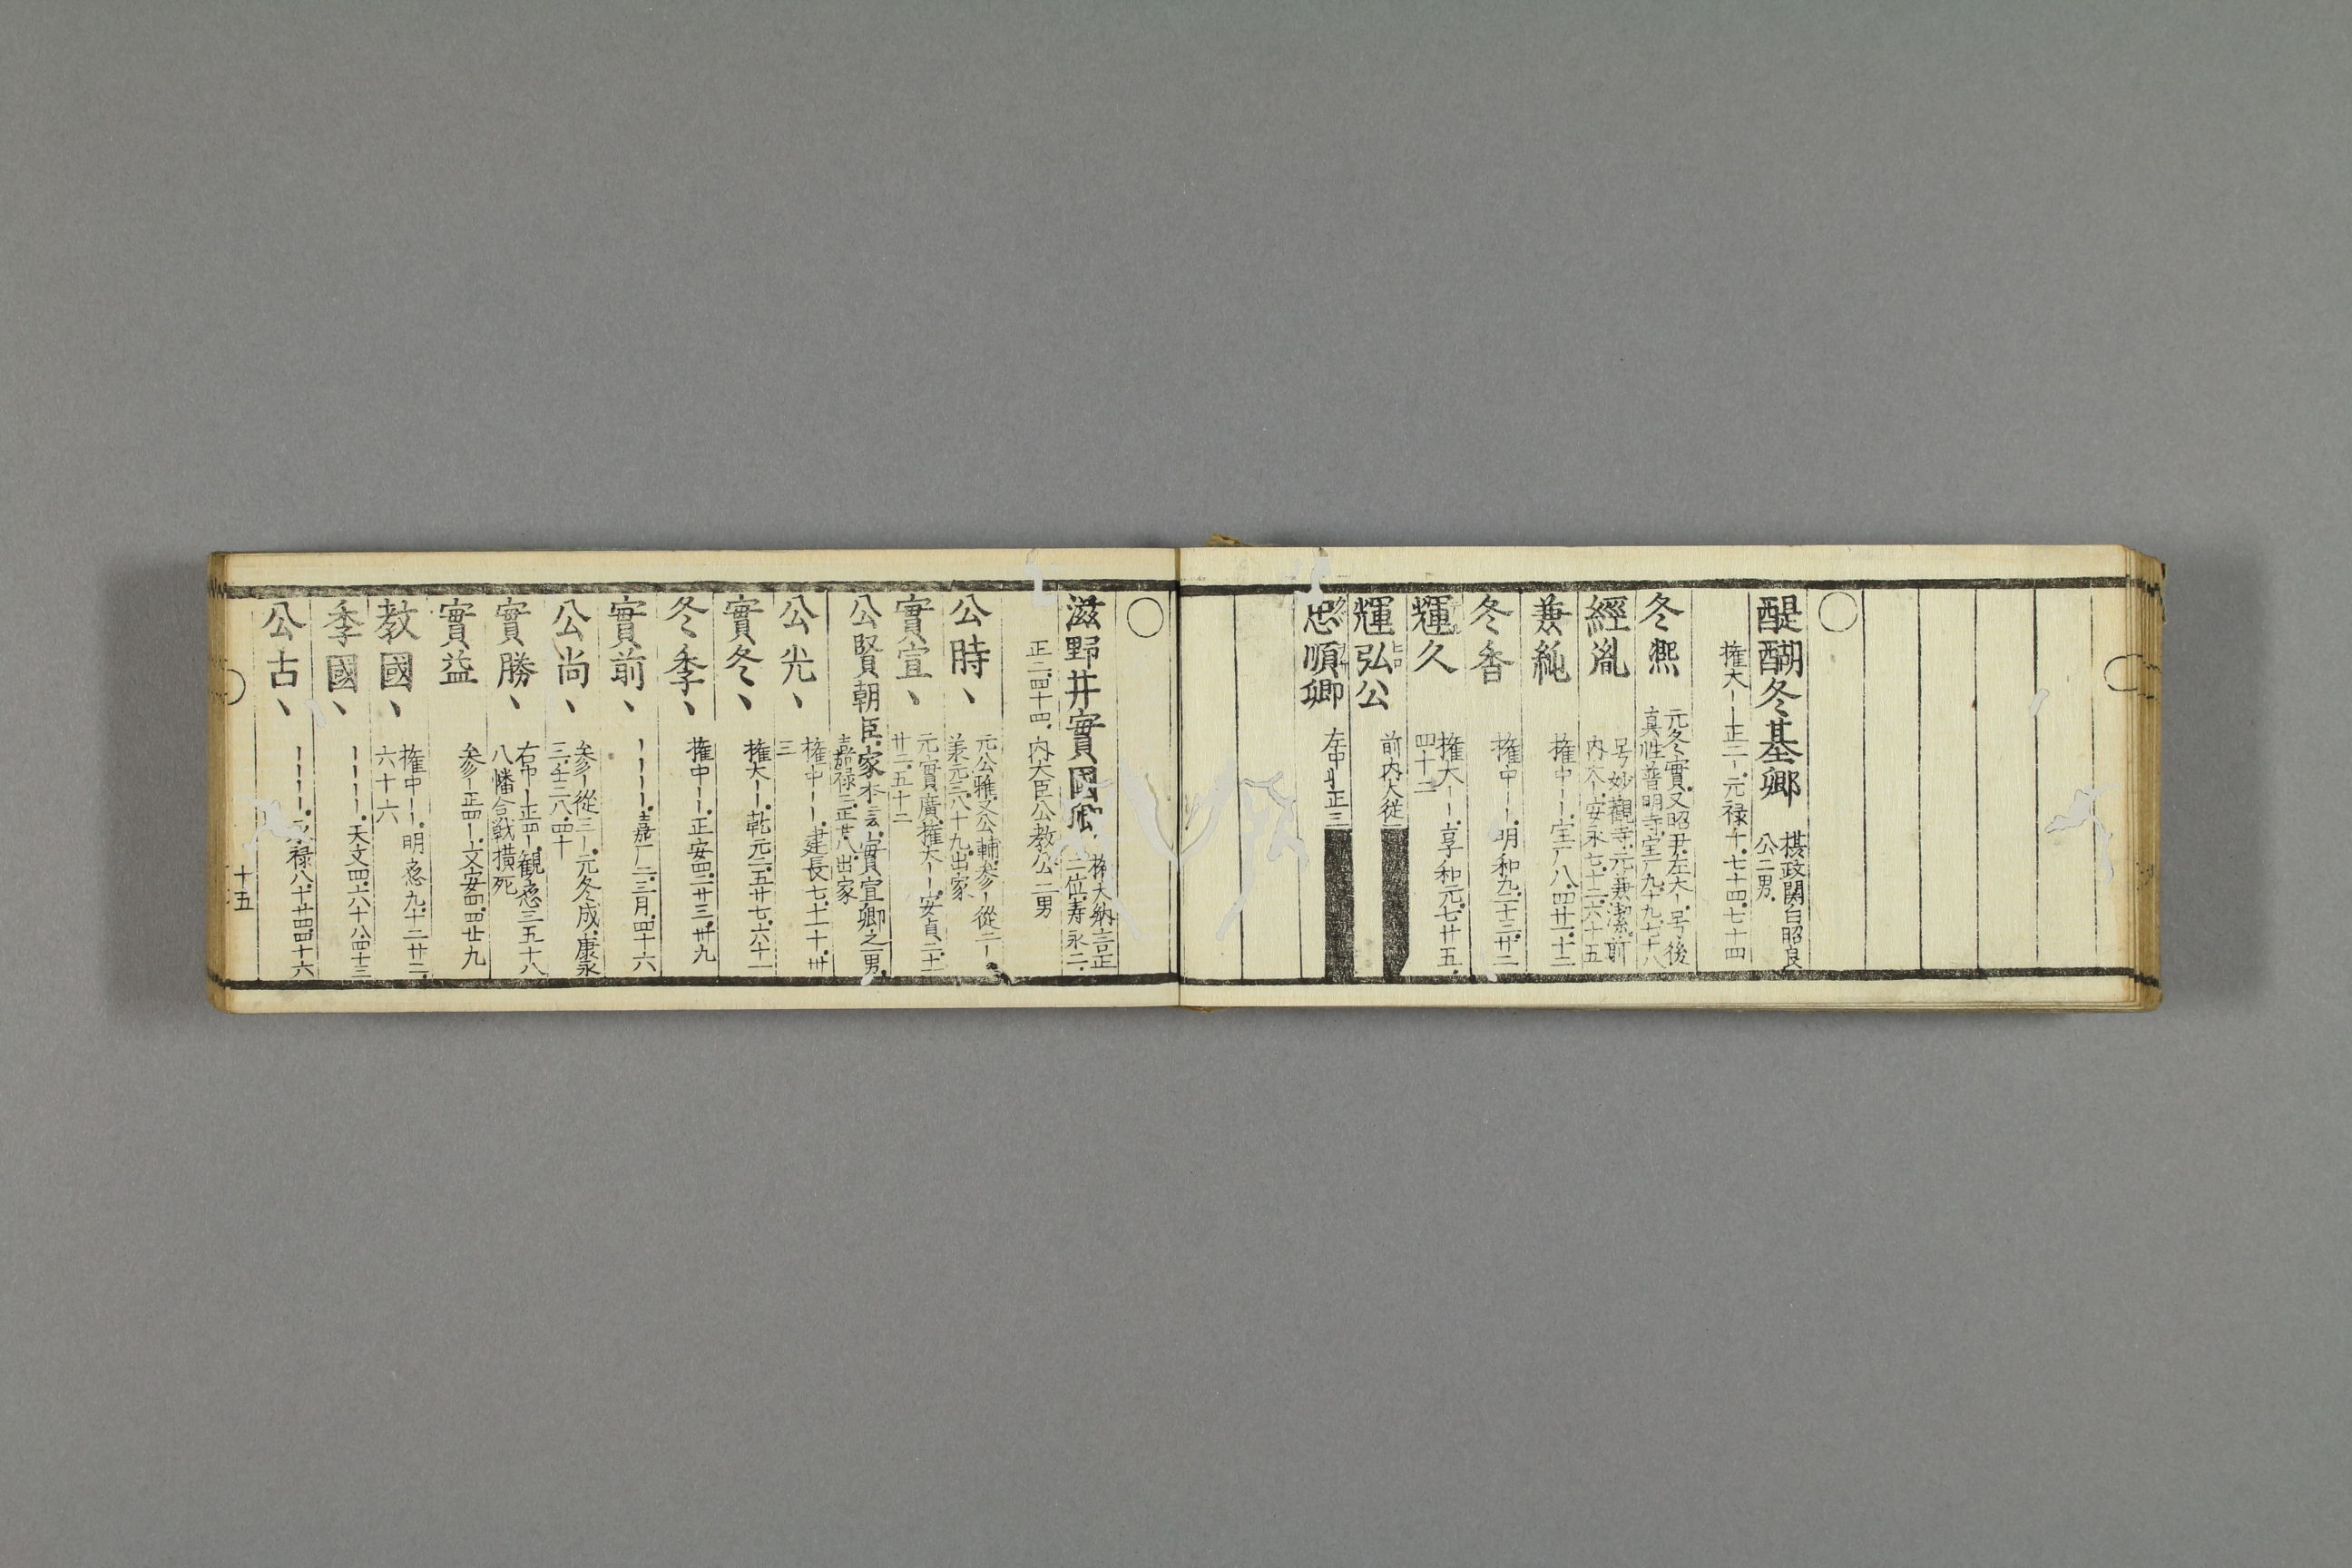 ○
醍醐冬基卿 棋政関白昭良
公二男
権大ー正二ー元禄十七十四七十四
冬熙 元冬實又昭尹左大ー号後
真性普明寺宝厂九十九七十八
經胤 号妙觀寺元兼潔前
内大ー安永七十二六十五
兼純 権中ーー宝厂八四廿一十二
冬香 権中ーー明和九二十三廿二
輝久 権大ーー享和元七廿五
四十二
輝弘公 前内大従一
忠順卿 左中ー正三
○
滋野井實國卿 権大納言正
二位寿永二
正二四十四内大臣公教公二男
公時、 元公雅又公輔参ー從二ー
兼元三八十九出家
實宣、 元實廣権大ーー安貞二十一
廿二五十二
公賢朝臣 家本云實宣卿之一男
嘉禄二正廿八出家
公光、 権中ーー建長七十一十卅
三
實冬、 権大ーー乾元二五廿七六十一
冬季、 権中ーー正安四二廿三卅九
實前、 ーーーー嘉厂二三月四十六
公尚、 参ー從三ー元冬成康永
三壬二八四十
實勝、 右中ー正四ー観應三五十八
八幡合戦横死
實益 参ー正四ー文安四四廿九
教國、 権中ーー明應九十二廿二
六十六
季國、 ーーーー天文四六十八四十三
公古、 ーーーー永禄八十廿四四十六
十五